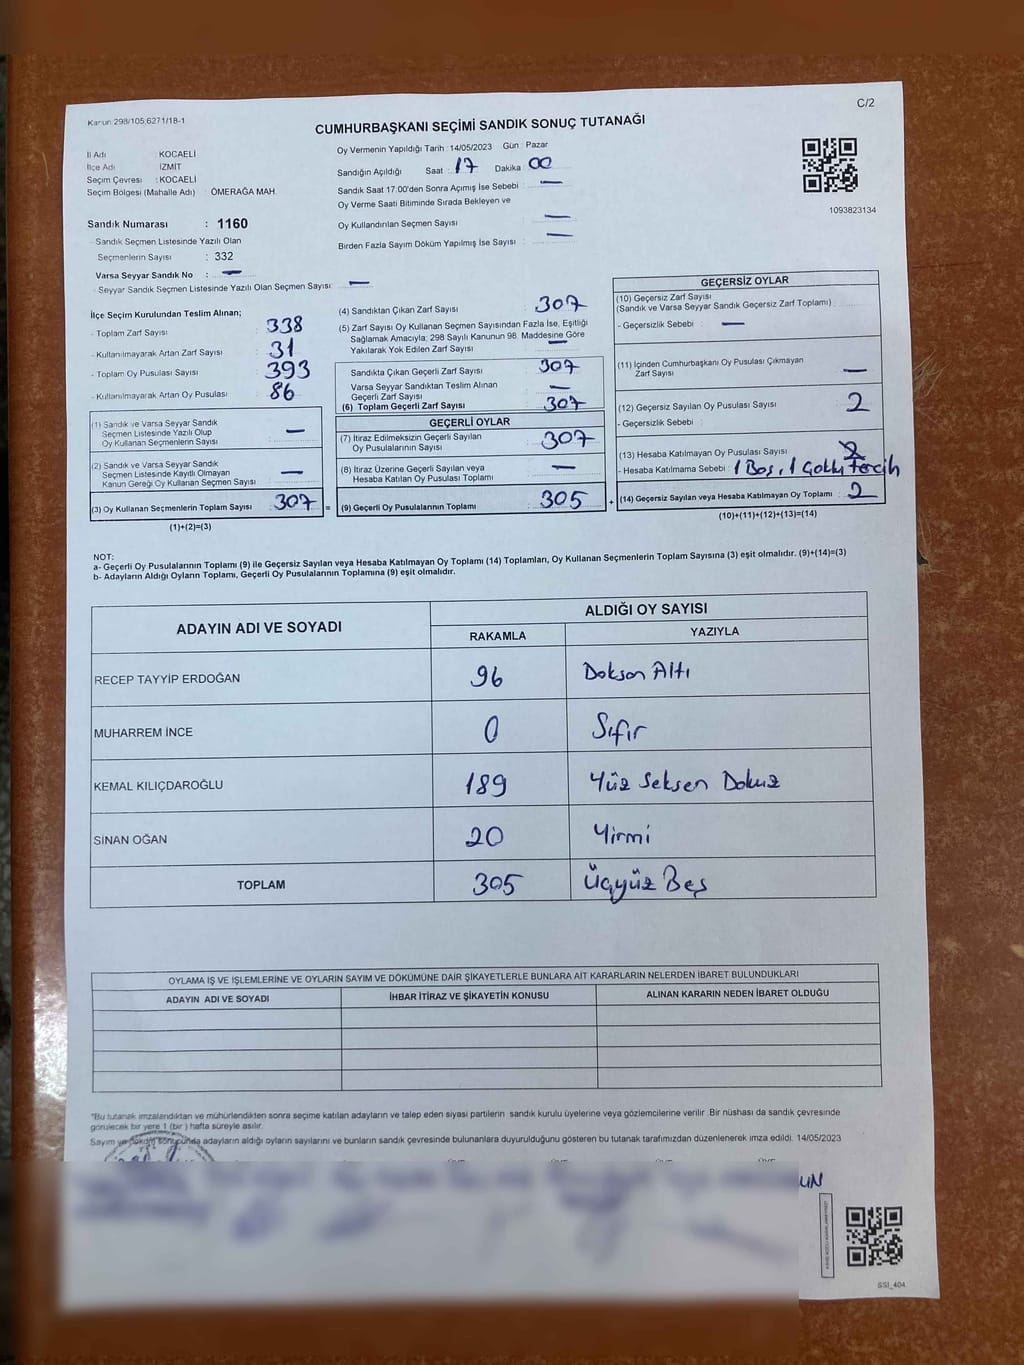 Karun 298/105,6271/18-1
C/2
CUMHURBAŞKANI SEÇİMİ SANDIK SONUÇ TUTANAĞI
İl Adı : KOCAELİ
İlçe Adı : İZMİT
Seçim Çevresi : KOCAELİ
Seçim Bölgesi (Mahalle Adı) : ÖMERAĞA MAH.
Oy Vermenin Yapıldığı Tarih : 14/05/2023 Gün : Pazar
Sandığın Açıldığı Saat : 17 Dakika : 00
Sandık Saat 17:00'den Sonra Açımış İse Sebebi : —
Oy Verme Saati Bitiminde Sırada Bekleyen ve
Oy Kullandırılan Seçmen Sayısı : —
Birden Fazla Sayım Döküm Yapılmış İse Sayısı : —
1093823134
Sandık Numarası : 1160
- Sandık Seçmen Listesinde Yazılı Olan
Seçmenlerin Sayısı : 332
Varsa Seyyar Sandık No : —
- Seyyar Sandık Seçmen Listesinde Yazılı Olan Seçmen Sayısı: —
İlçe Seçim Kurulundan Teslim Alınan;
- Toplam Zarf Sayısı : 338
- Kullanılmayarak Artan Zarf Sayısı : 31
- Toplam Oy Pusulası Sayısı : 393
- Kullanılmayarak Artan Oy Pusulası : 86
(1) Sandık ve Varsa Seyyar Sandık
Seçmen Listesinde Yazılı Olup
Oy Kullanan Seçmenlerin Sayısı : —
(2) Sandık ve Varsa Seyyar Sandık
Seçmen Listesinde Kayıtlı Olmayan
Kanun Gereği Oy Kullanan Seçmen Sayısı : —
(3) Oy Kullanan Seçmenlerin Toplam Sayısı : 307 =
(1)+(2)=(3)
(4) Sandıktan Çıkan Zarf Sayısı : 307
(5) Zarf Sayısı Oy Kullanan Seçmen Sayısından Fazla İse, Eşitliği
Sağlamak Amacıyla; 298 Sayılı Kanunun 98. Maddesine Göre
Yakılarak Yok Edilen Zarf Sayısı : —
Sandıkta Çıkan Geçerli Zarf Sayısı : 307
Varsa Seyyar Sandıktan Teslim Alınan
Geçerli Zarf Sayısı : —
(6) Toplam Geçerli Zarf Sayısı : 307
GEÇERLİ OYLAR
(7) İtiraz Edilmeksizin Geçerli Sayılan
Oy Pusulalarının Sayısı : 307
(8) İtiraz Üzerine Geçerli Sayılan veya
Hesaba Katılan Oy Pusulası Toplamı : —
(9) Geçerli Oy Pusulalarının Toplamı : 305 +
GEÇERSİZ OYLAR
(10) Geçersiz Zarf Sayısı
(Sandık ve Varsa Seyyar Sandık Geçersiz Zarf Toplamı) :
- Geçersizlik Sebebi : —
(11) İçinden Cumhurbaşkanı Oy Pusulası Çıkmayan
Zarf Sayısı : —
(12) Geçersiz Sayılan Oy Pusulası Sayısı : 2
- Geçersizlik Sebebi :
(13) Hesaba Katılmayan Oy Pusulası Sayısı :
- Hesaba Katılmama Sebebi : 1 Boş, 1 Çoklu Tercih
(14) Geçersiz Sayılan veya Hesaba Katılmayan Oy Toplamı : 2
(10)+(11)+(12)+(13)=(14)
NOT:
a- Geçerli Oy Pusulalarının Toplamı (9) ile Geçersiz Sayılan veya Hesaba Katılmayan Oy Toplamı (14) Toplamları, Oy Kullanan Seçmenlerin Toplam Sayısına (3) eşit olmalıdır. (9)+(14)=(3)
b- Adayların Aldığı Oyların Toplamı, Geçerli Oy Pusulalarının Toplamına (9) eşit olmalıdır.
ADAYIN ADI VE SOYADI
ALDIĞI OY SAYISI
RAKAMLA YAZIYLA
RECEP TAYYİP ERDOĞAN 96 Doksan Altı
MUHARREM İNCE 0 Sıfır
KEMAL KILIÇDAROĞLU 189 Yüz Seksen Dokuz
SİNAN OĞAN 20 Yirmi
TOPLAM 305 Üçyüz Beş
OYLAMA İŞ VE İŞLEMLERİNE VE OYLARIN SAYIM VE DÖKÜMÜNE DAİR ŞİKAYETLERLE BUNLARA AİT KARARLARIN NELERDEN İBARET BULUNDUKLARI
ADAYIN ADI VE SOYADI İHBAR İTİRAZ VE ŞİKAYETİN KONUSU ALINAN KARARIN NEDEN İBARET OLDUĞU
"Bu tutanak imzalandıktan ve mühürlendikten sonra seçime katılan adayların ve talep eden siyasi partilerin sandık kurulu üyelerine veya gözlemcilerine verilir. Bir nüshası da sandık çevresinde
görülecek bir yere 1 (bir) hafta süreyle asılır.
Sayım ve döküm sonucunda adayların aldığı oyların sayılarını ve bunların sandık çevresinde bulunanlara duyurulduğunu gösteren bu tutanak tarafımızdan düzenlenerek imza edildi. 14/05/2023
SSI_404